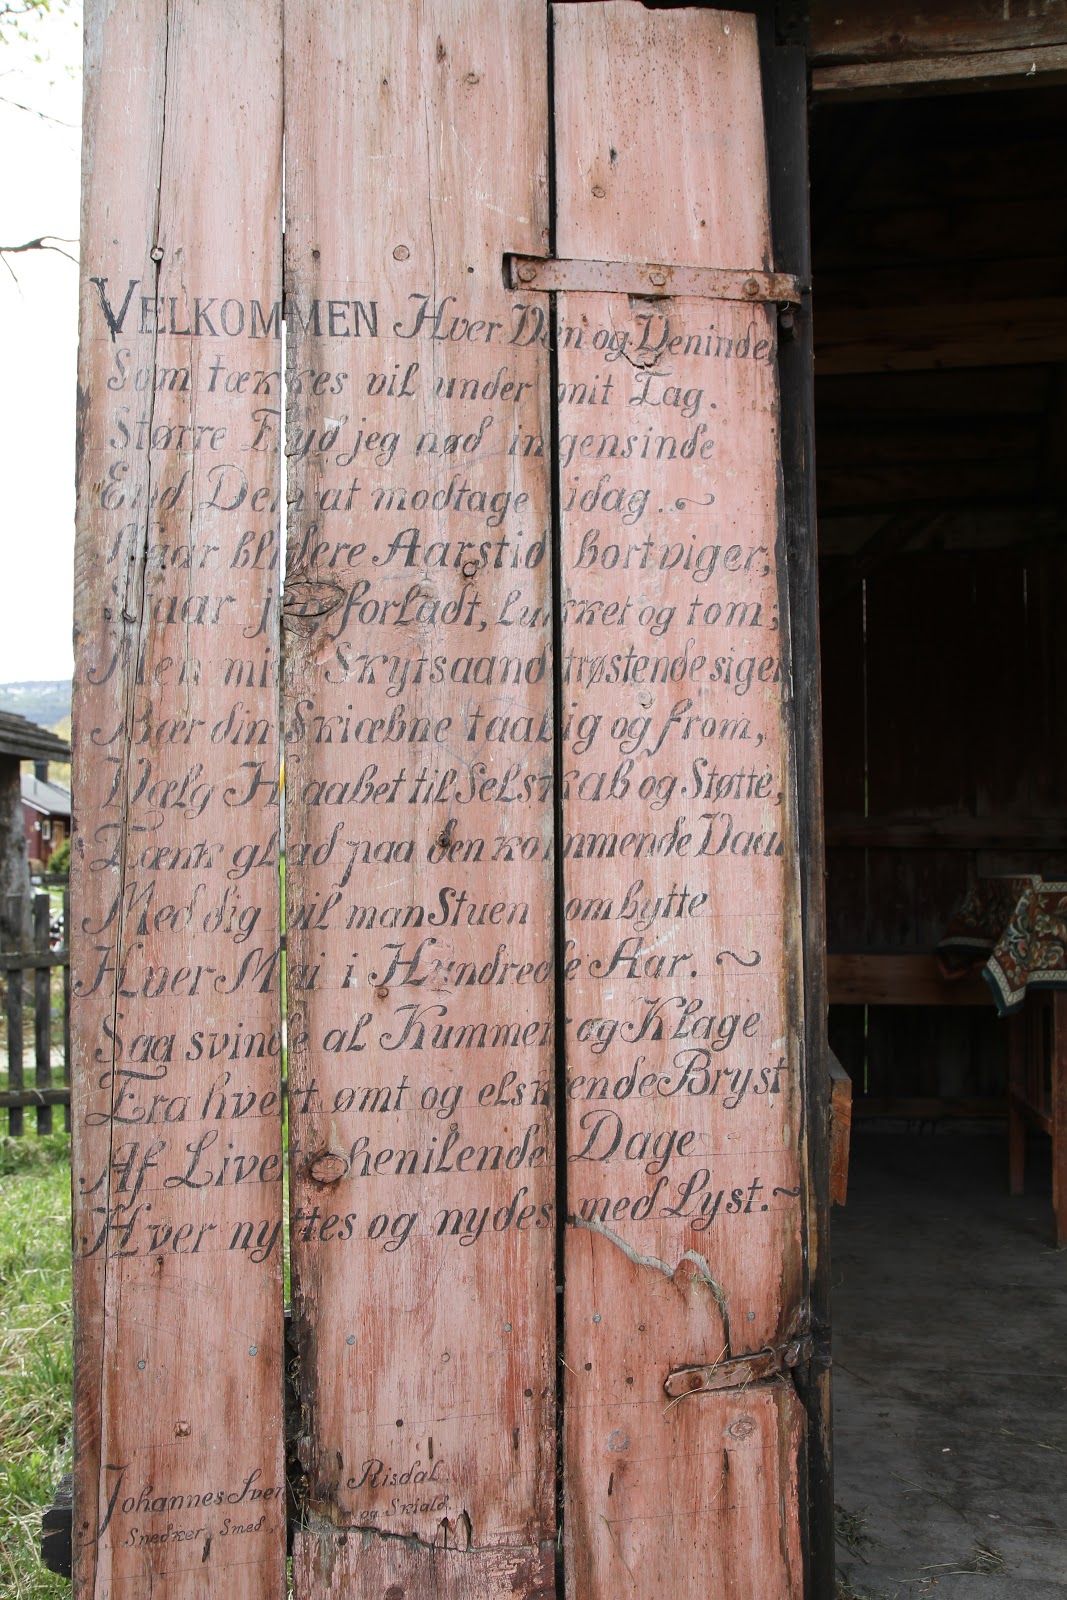 VELKOMMEN Hver Ven og Veninde,
Som tækkes vil under mit Tag.
Større Fryd jeg nød ingensinde
End Dem at modtage idag.
Naar blidere Aarstid bortviger,
Staar jeg forladt, lukket og tom;
Men min Skytsaand trøstende siger
Bær din Skiæbne taalig og from,
Vælg Haabet til Selskab og Støtte,
Tænk glad paa den kommende Vaar
Med dig vil man Stuen ombytte
Hver Mai i Hundrede Aar.
Saa svinde al Kummer og Klage
Fra hvert ømt og elskende Bryst
Af Livets henilende Dage
Hver nyttes og nydes med Lyst.
Johannes Risdal
Snedker, Smed og Skiald.